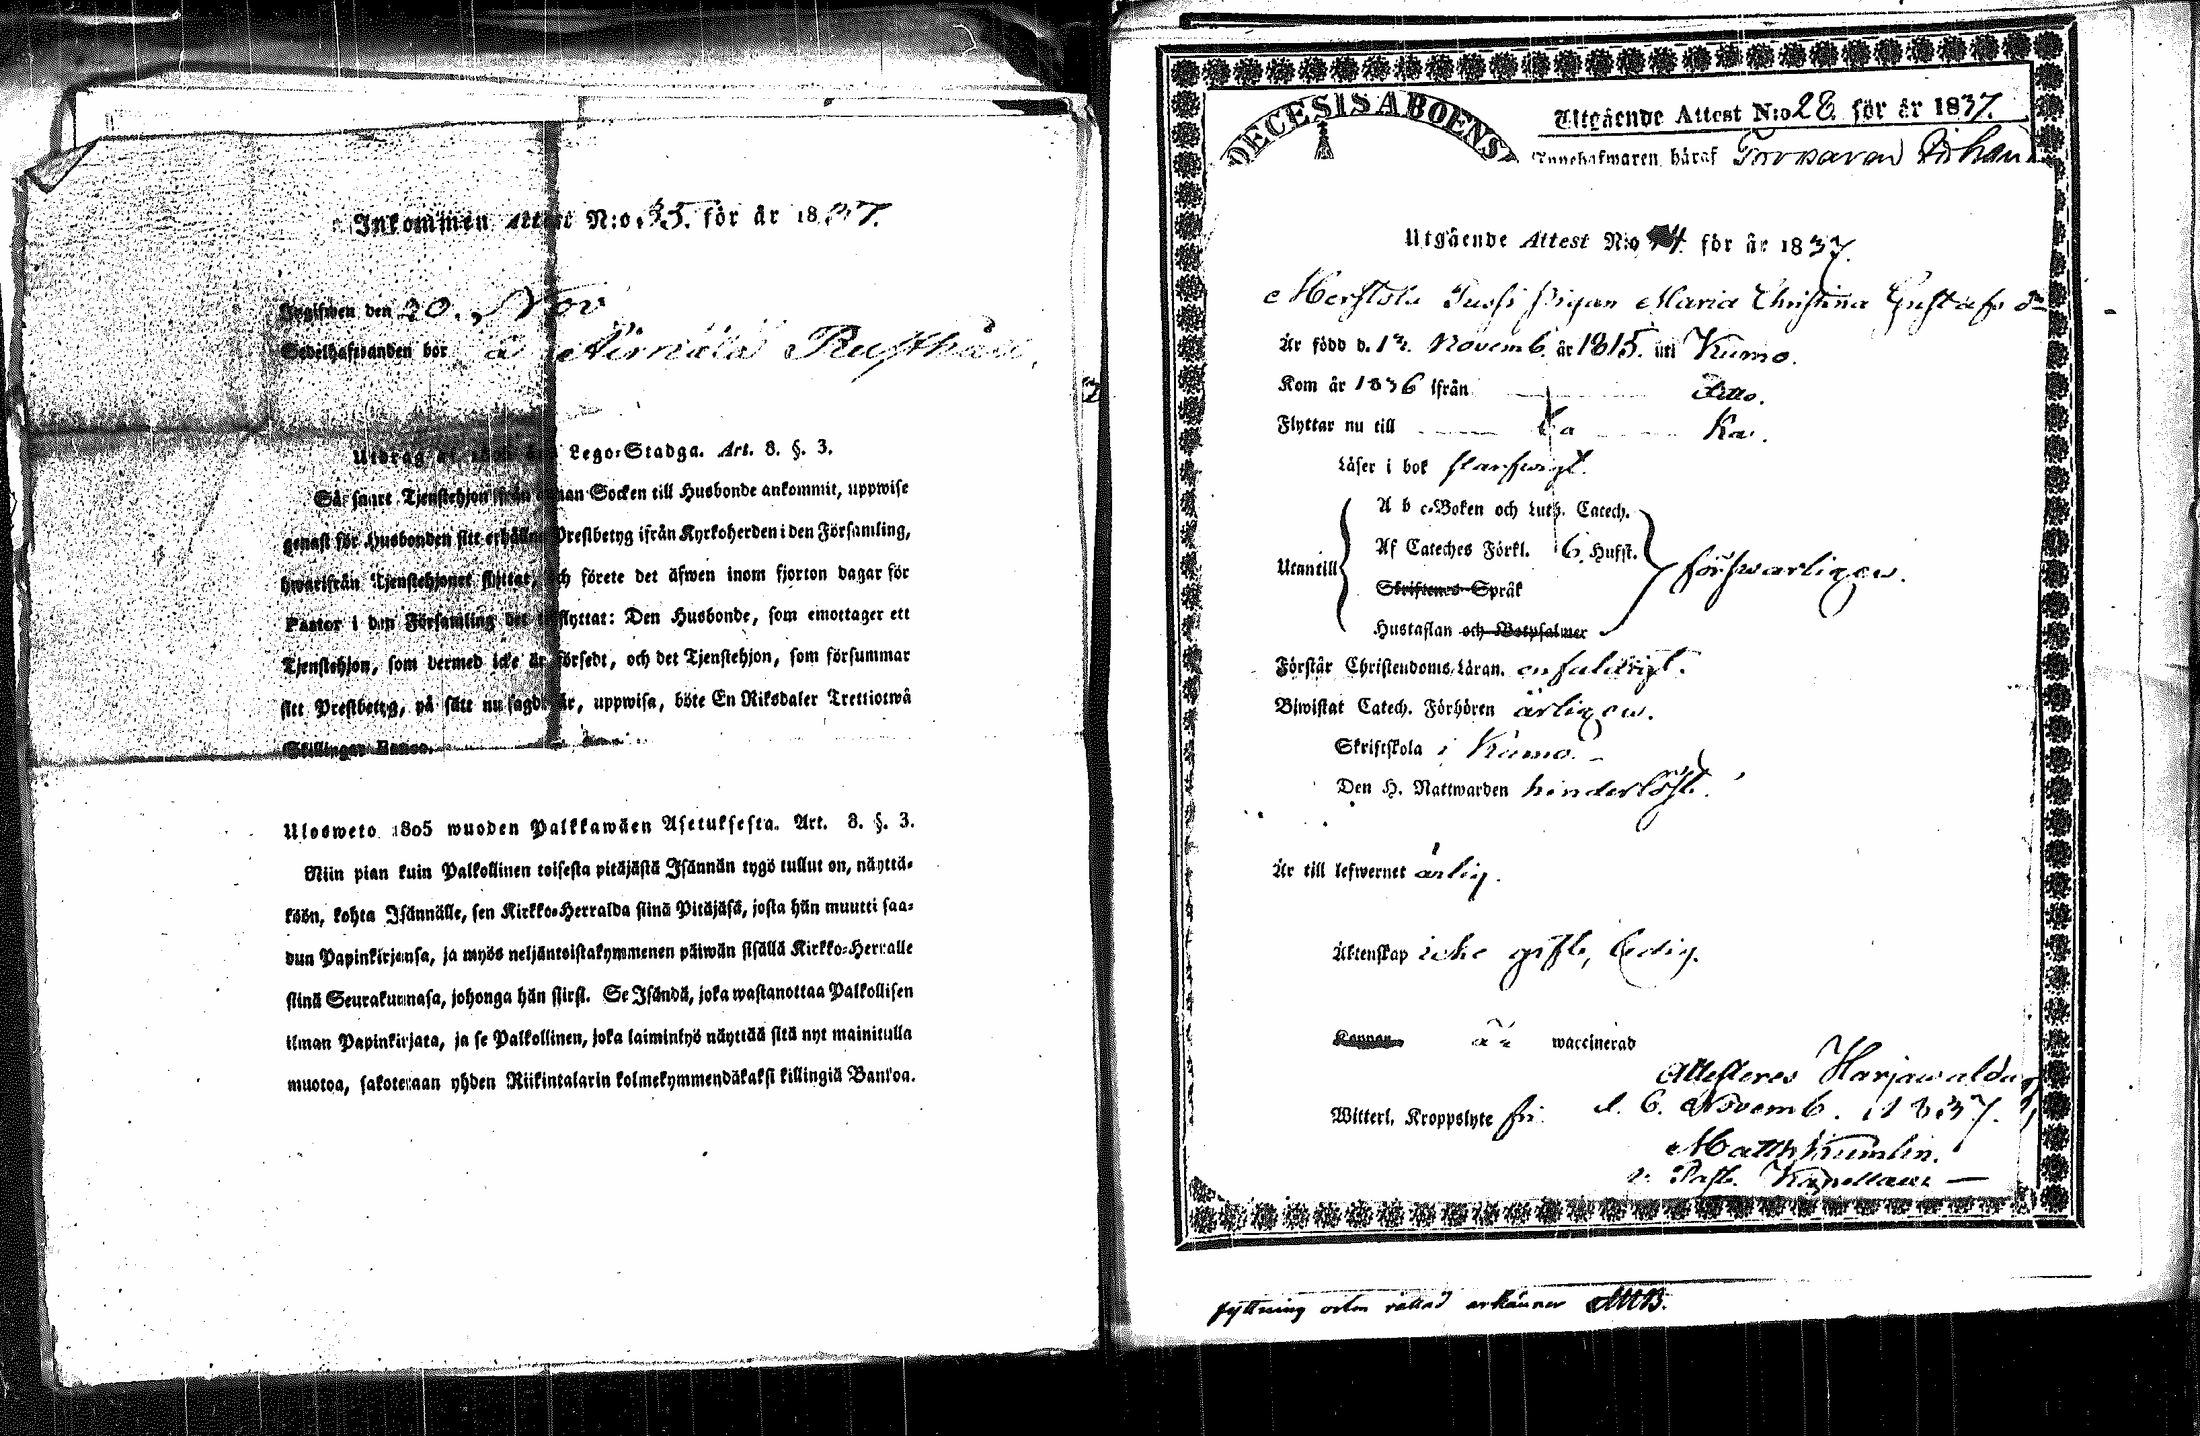 Inkommen Attest N:o 35. för år 1837.
Ingifwen den 20. Nov
Sedelhafwanden bor å Airnälä Rusthåll,
Utdrag af 1805 års Lego-Stadga. Art. 8. §. 3.
Så snart Tjenstehjon ifrån annan Socken till Husbonde ankommit, uppwise
genast för Husbonden sitt erhållne Prestbetyg ifrån Kyrkoherden i den Församling,
hwarifrån Tjenstehjonet flyttat, och förete det äfwen inom fjorton dagar för
Pastor i den Församling det inflyttat: Den Husbonde, som emottager ett
Tjenstehjon, som dermed icke är försedt, och det Tjenstehjon, som försummar
sitt Prestbetyg, på sätt nu sagdt är, uppwisa, böte En Riksdaler Trettiotwå
Skillingar Banco.
Ulosweto 1805 wuoden Palkkawäen Asetuksesta. Art. 8. §. 3.
Niin pian kuin Palkollinen toisesta pitäjästä Isännän tygö tullut on, näyttä-
köön, kohta Isännälle, sen Kirkko-Herralda siinä Pitäjäsä, josta hän muutti saa-
dun Papinkirjansa, ja myös neljäntoistakymmenen päiwän sisällä Kirkko-Herralle
siinä Seurakunnasa, johonga hän siirsi. Se Isändä, joka wastanottaa Palkollisen
ilman Papinkirjata, ja se Palkollinen, joka laiminlyö näyttää sitä nyt mainitulla
muotoa, sakotetaan yhden Riikintalarin kolmekymmendäkaksi killingiä Banкoa.
DECESIS ABOENS
Utgående Attest N:o 28. för år 1837.
Innehafwaren häraf Torparen Johan
Utgående Attest N:o 44. för år 1837.
Merstola Jussi Pigan Maria Christina Gustafs dr
Är född d. 12. Novemb. år 1815. uti Kumo.
Kom år 1836 ifrån Ditto.
Flyttar nu till
Läser i bok
A b c-Boken och Luth. Catech.
Af Cateches Förkl. 6. Hufst.
Utantill försvarligen.
Skriftenes Språk
Hustaflan och Botpsalmer
Förstår Christendoms-Läran. enfaldigt.
Biwistat Catech. Förhören ärligen.
Skriftskola i Kumo.
Den H. Nattwarden hinderlöst.
Är till lefwernet ärlig.
Äktenskap icke gift, ledig.
Koppor är waccinerad
Attesteres Harjawalda
Witterl. Kroppslyte fri. d. 6. Novemb. 1837.
Matth Kumlin.
v. Past. Kapellan
flyttning orten rättad erkänner MB.